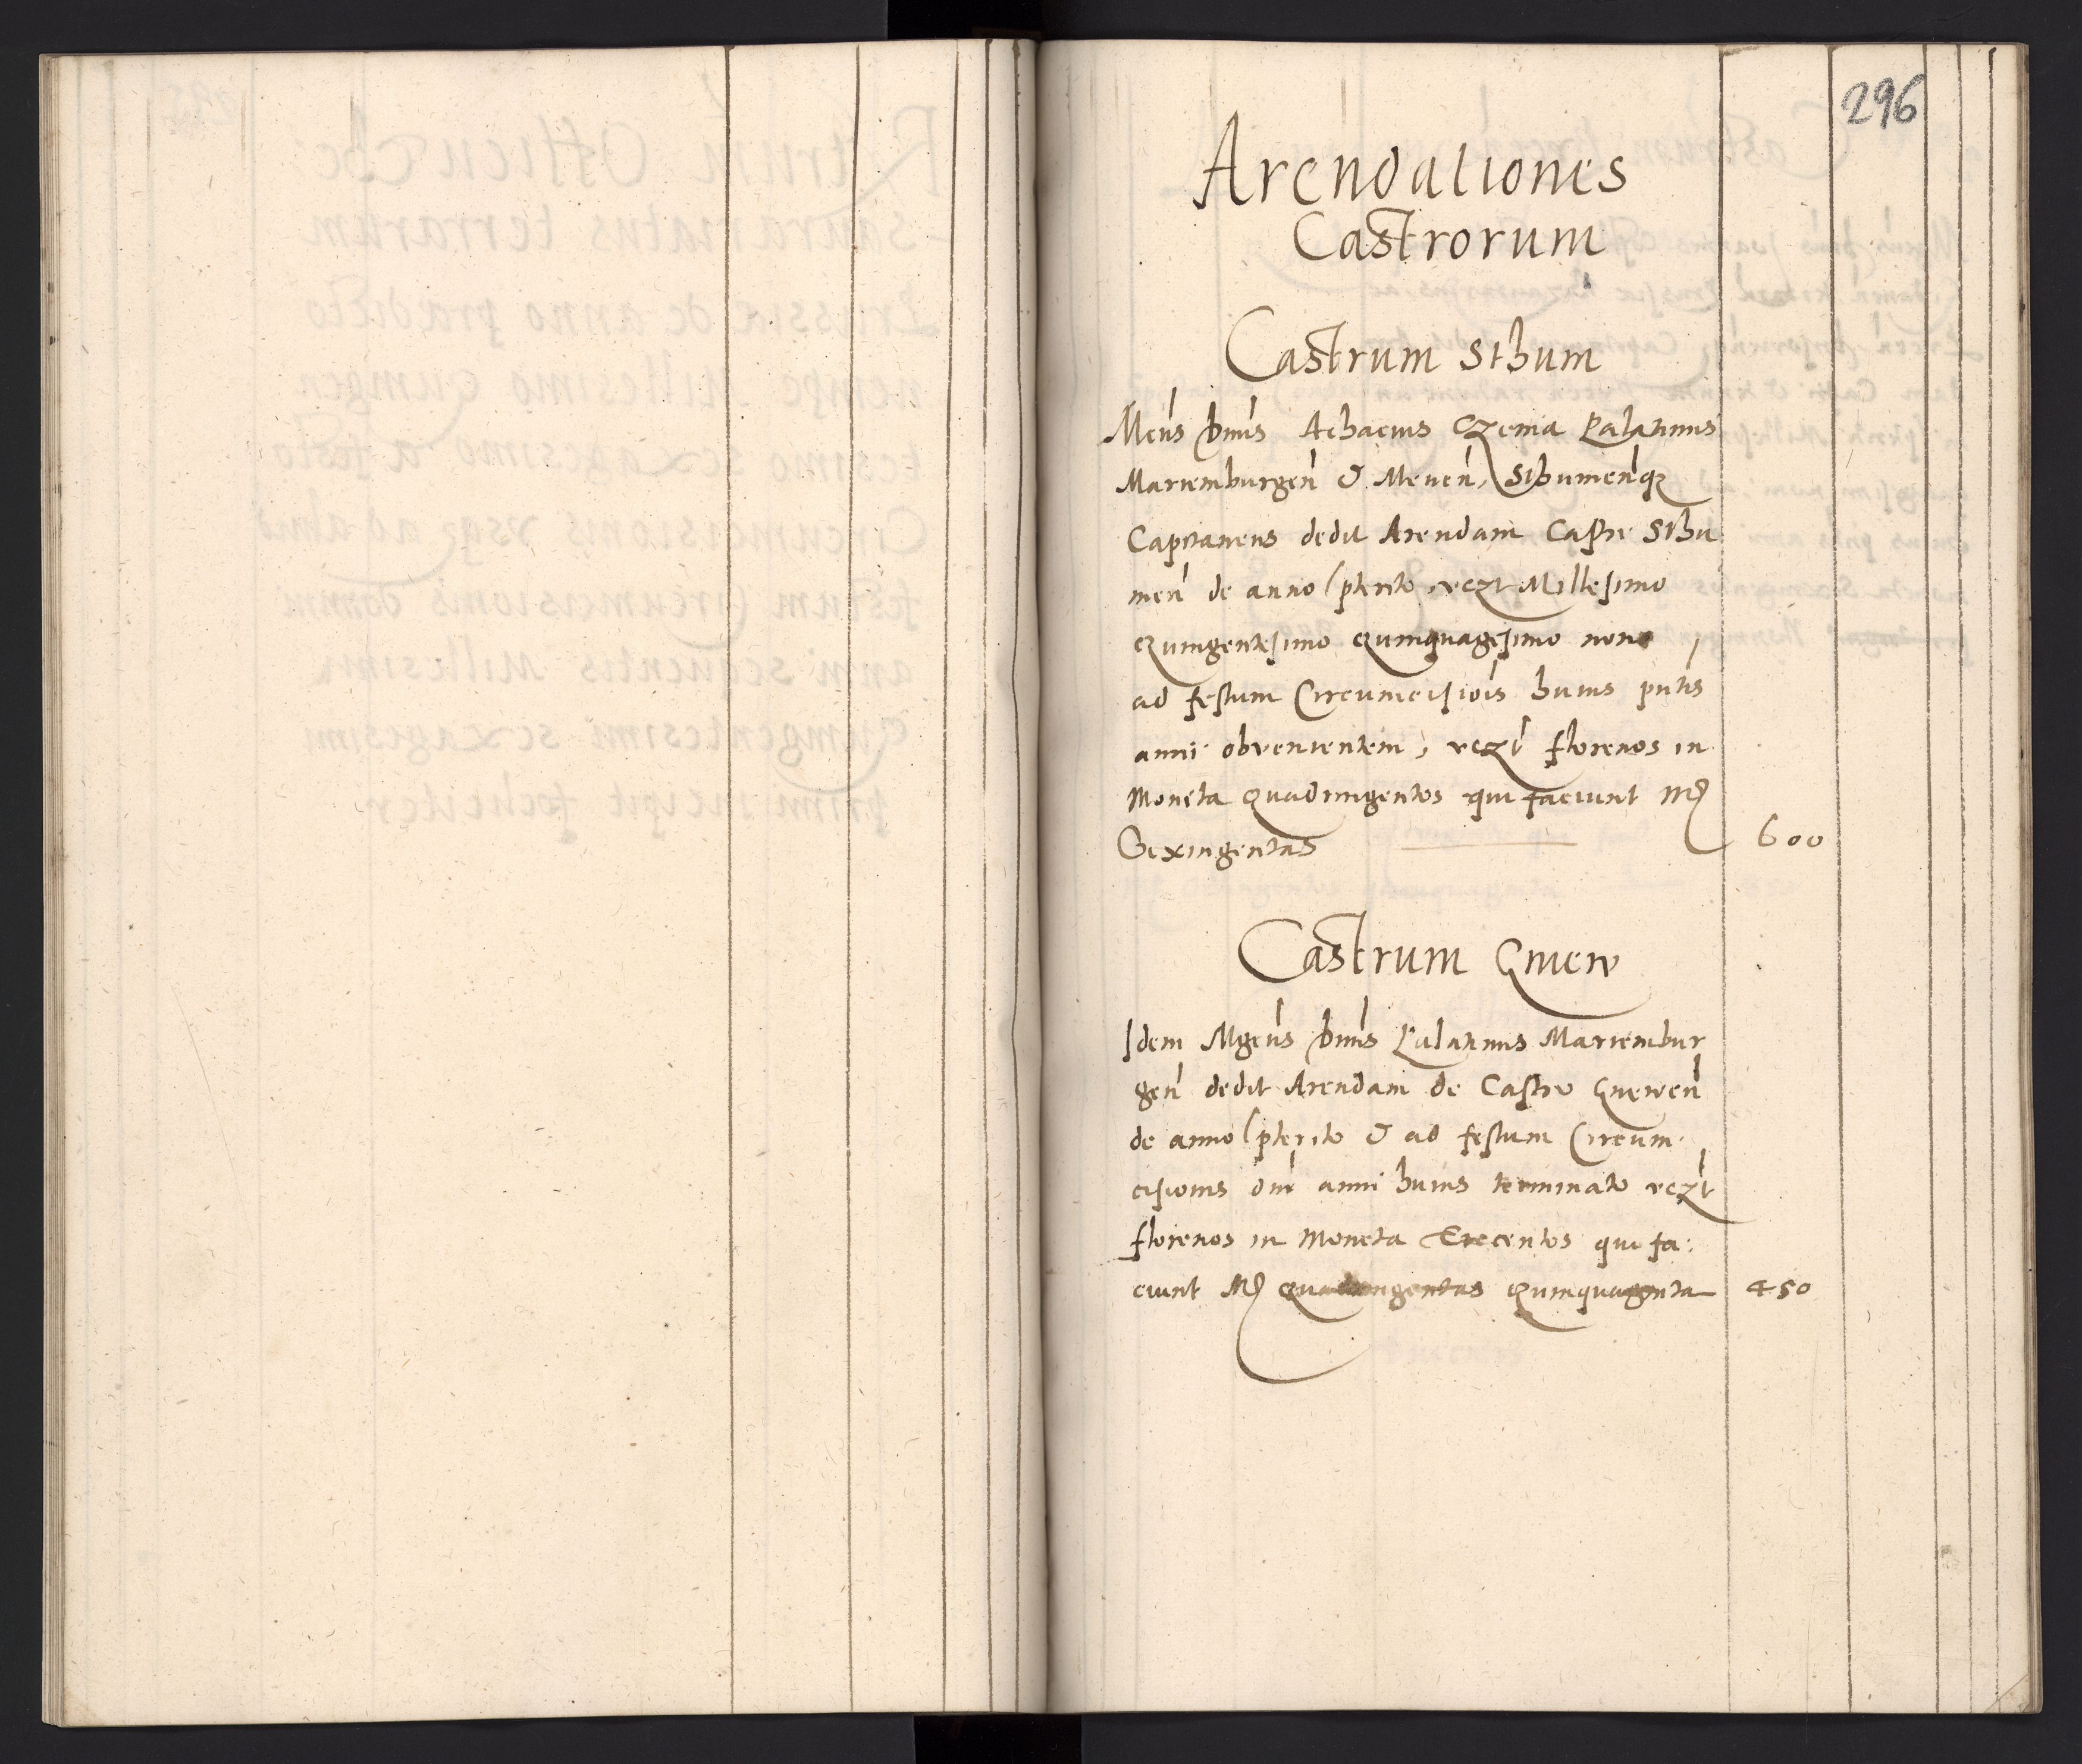 296
Arendationes
Castrorum
Castrum Sthum
Mcus dnus Achacius Czema Palatinus
Mariemburgen & Meuen, Sthumenq
Capitaneus dedit Arendam Castri Sthu
men de anno pterito vezt Millesimo
Quingentesimo Quinquagesimo nono
ad festum Circumcisiois huius pntis
anni obvenientem, vezt florenos in
Moneta Quadringentos qui faciunt Mß
Sexingentas 600
Castrum Gniew
Idem Mgcus dnus Palatinus Mariembur
gen dedit Arendam de Castro Gneven
de anno pterito & ad festum Circum
cisionis dni anni huius terminato vezt
florenos in Moneta Trecentos qui fa:
ciunt Mß Quadringentas Quinquaginta 450